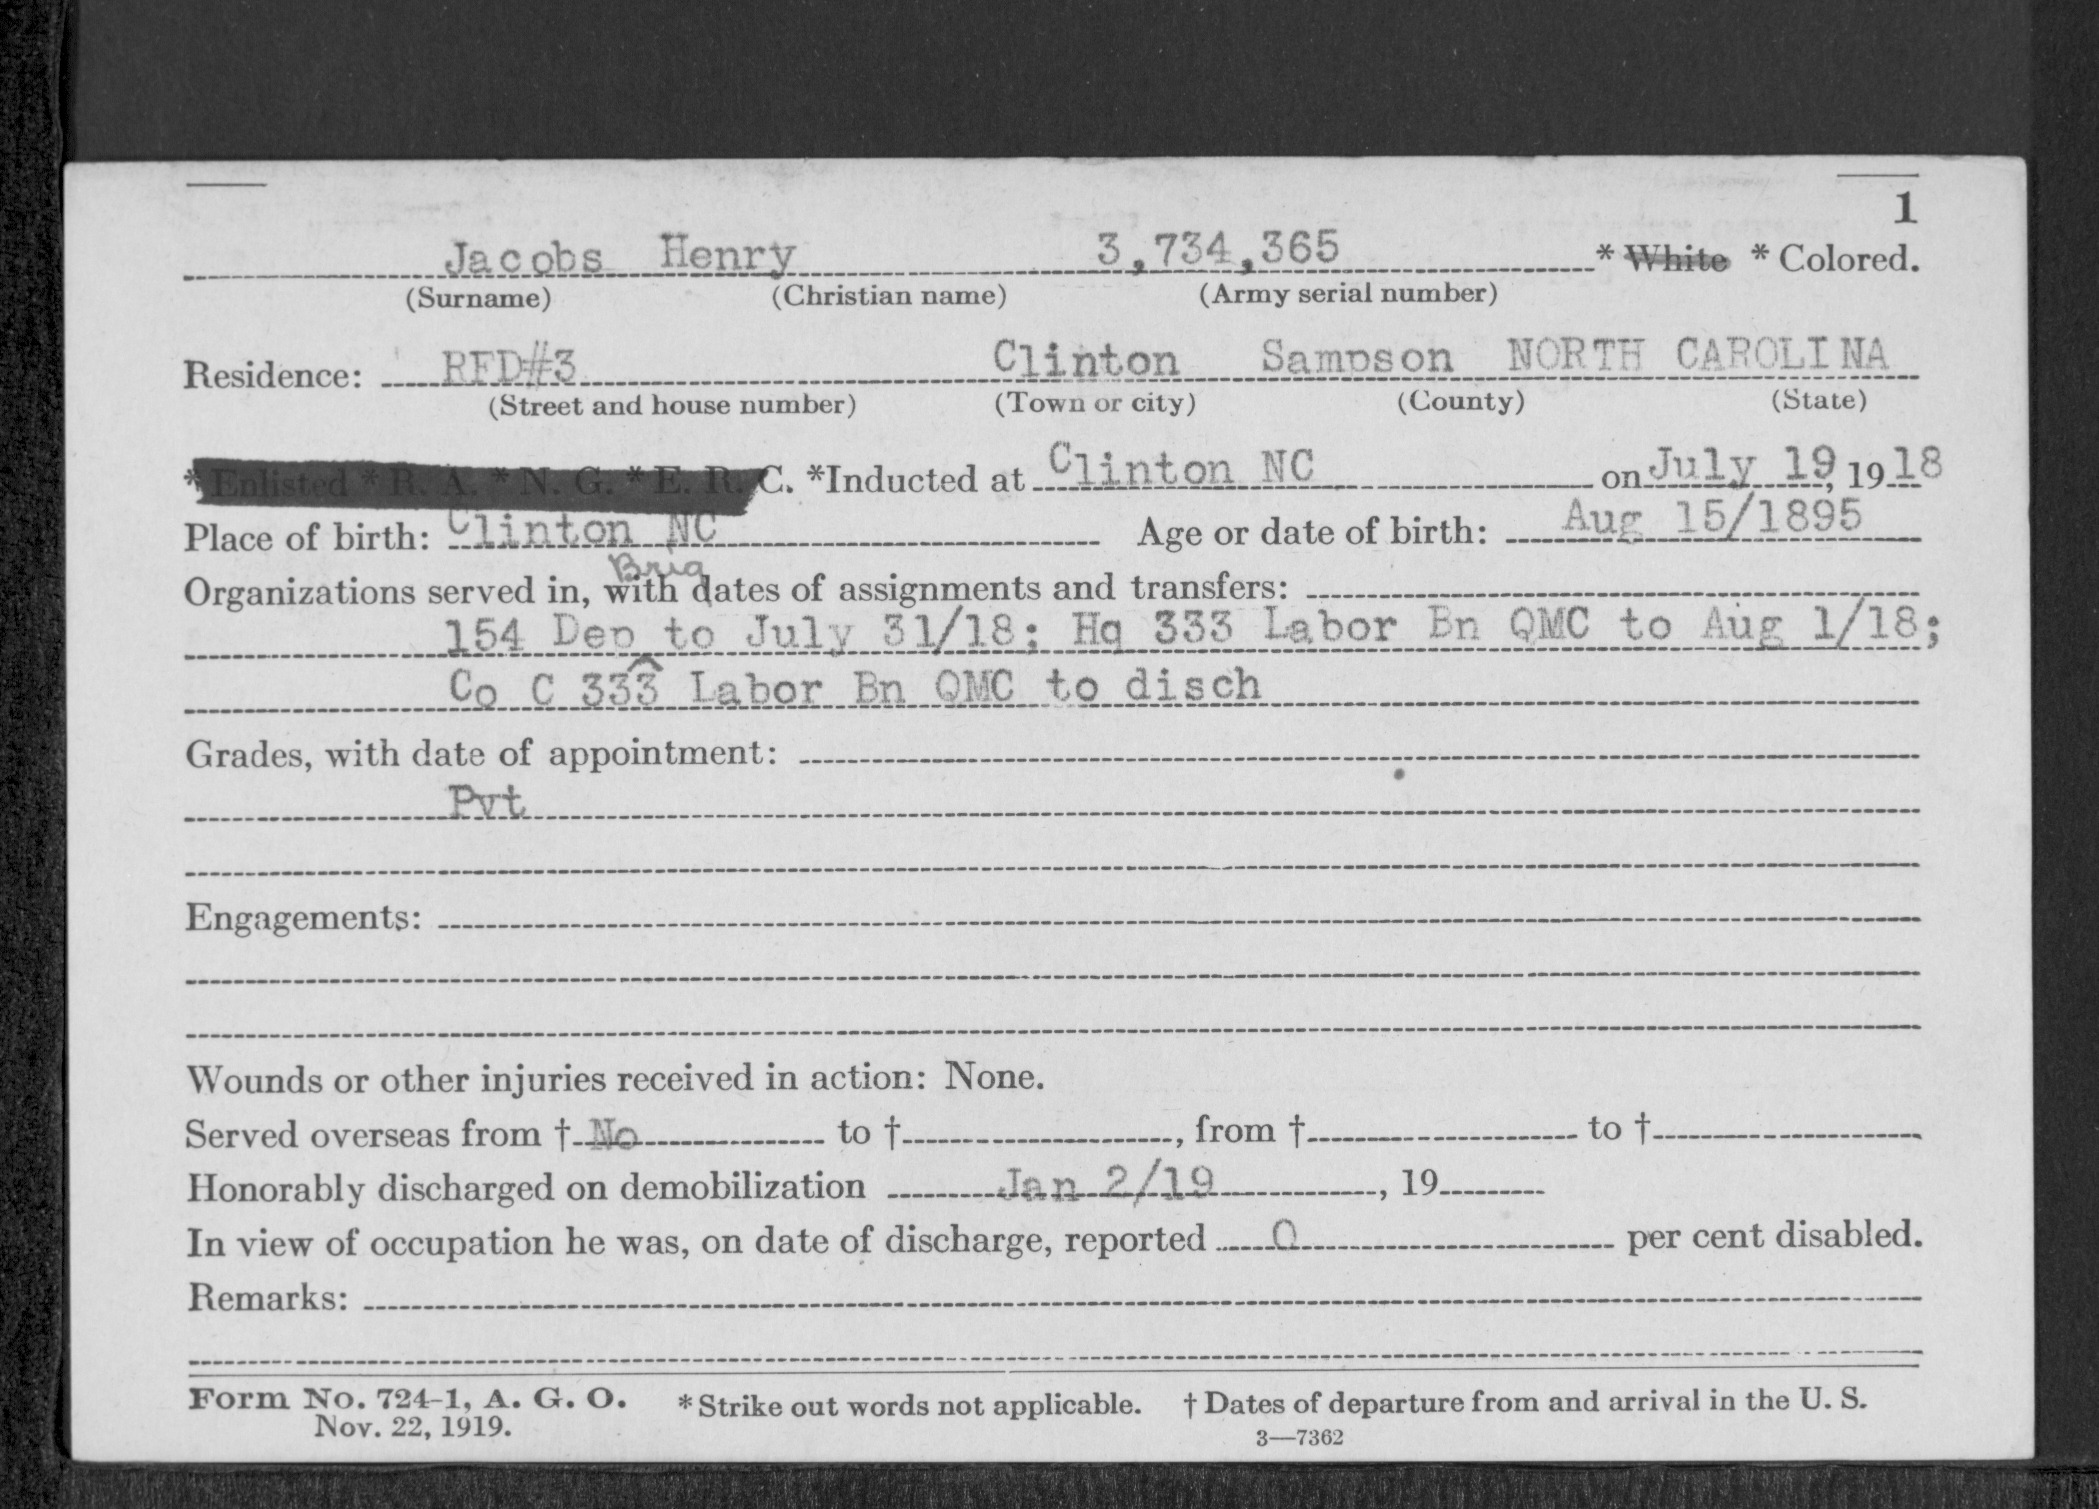 1
Jacobs Henry 3,734,365 * White * Colored.
(Surname) (Christian name) (Army serial number)
Residence: RFD#3 Clinton Sampson NORTH CAROLINA
(Street and house number) (Town or city) (County) (State)
* Enlisted * R. A. * N. G. * E. R. C. *Inducted at Clinton NC on July 19, 1918
Place of birth: Clinton NC Age or date of birth: Aug 15/1895
Organizations served in, with dates of assignments and transfers:
Brig
154 Dep to July 31/18; Hq 333 Labor Bn QMC to Aug 1/18;
Co C 333 Labor Bn QMC to disch
Grades, with date of appointment:
Pvt
Engagements:
Wounds or other injuries received in action: None.
Served overseas from † No to †, from † to †
Honorably discharged on demobilization Jan 2/19, 19
In view of occupation he was, on date of discharge, reported 0 per cent disabled.
Remarks:
Form No. 724-1, A. G. O. * Strike out words not applicable. † Dates of departure from and arrival in the U. S.
Nov. 22, 1919. 3—7362